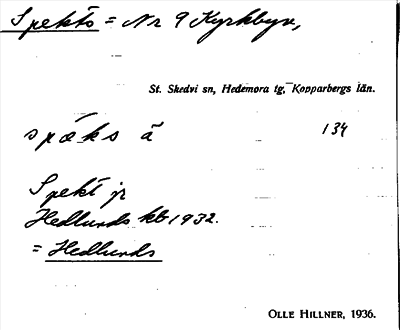 Spekts = Nr 9 Kyrkbyn,
St. Skedvi sn, Hedemora tg, Kopparbergs län.
spæks ã 134
Spekt jr
Hedlunds kb 1932.
= Hedlunds
OLLE HILLNER, 1936.